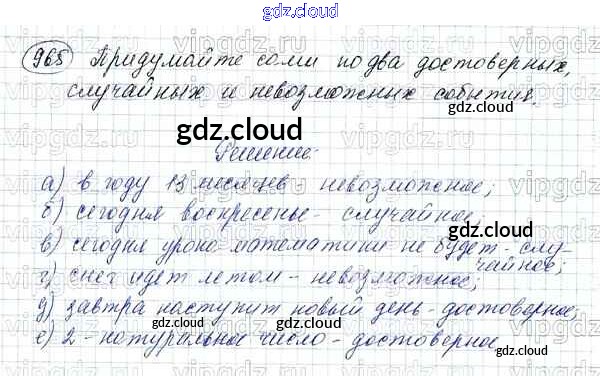 gdz.cloud
965 Придумайте сами по два достоверных,
случайных и невозможных события.
gdz.cloud
Решение:
а) в году 13 месяцев невозможное;
б) сегодня воскресенье - случайное;
в) сегодня урока математики не будет - слу-
чайное;
г) снег идет летом - невозможное;
д) завтра наступит новый день - достоверное;
е) 2 - натуральное число - достоверное
gdz.cloud